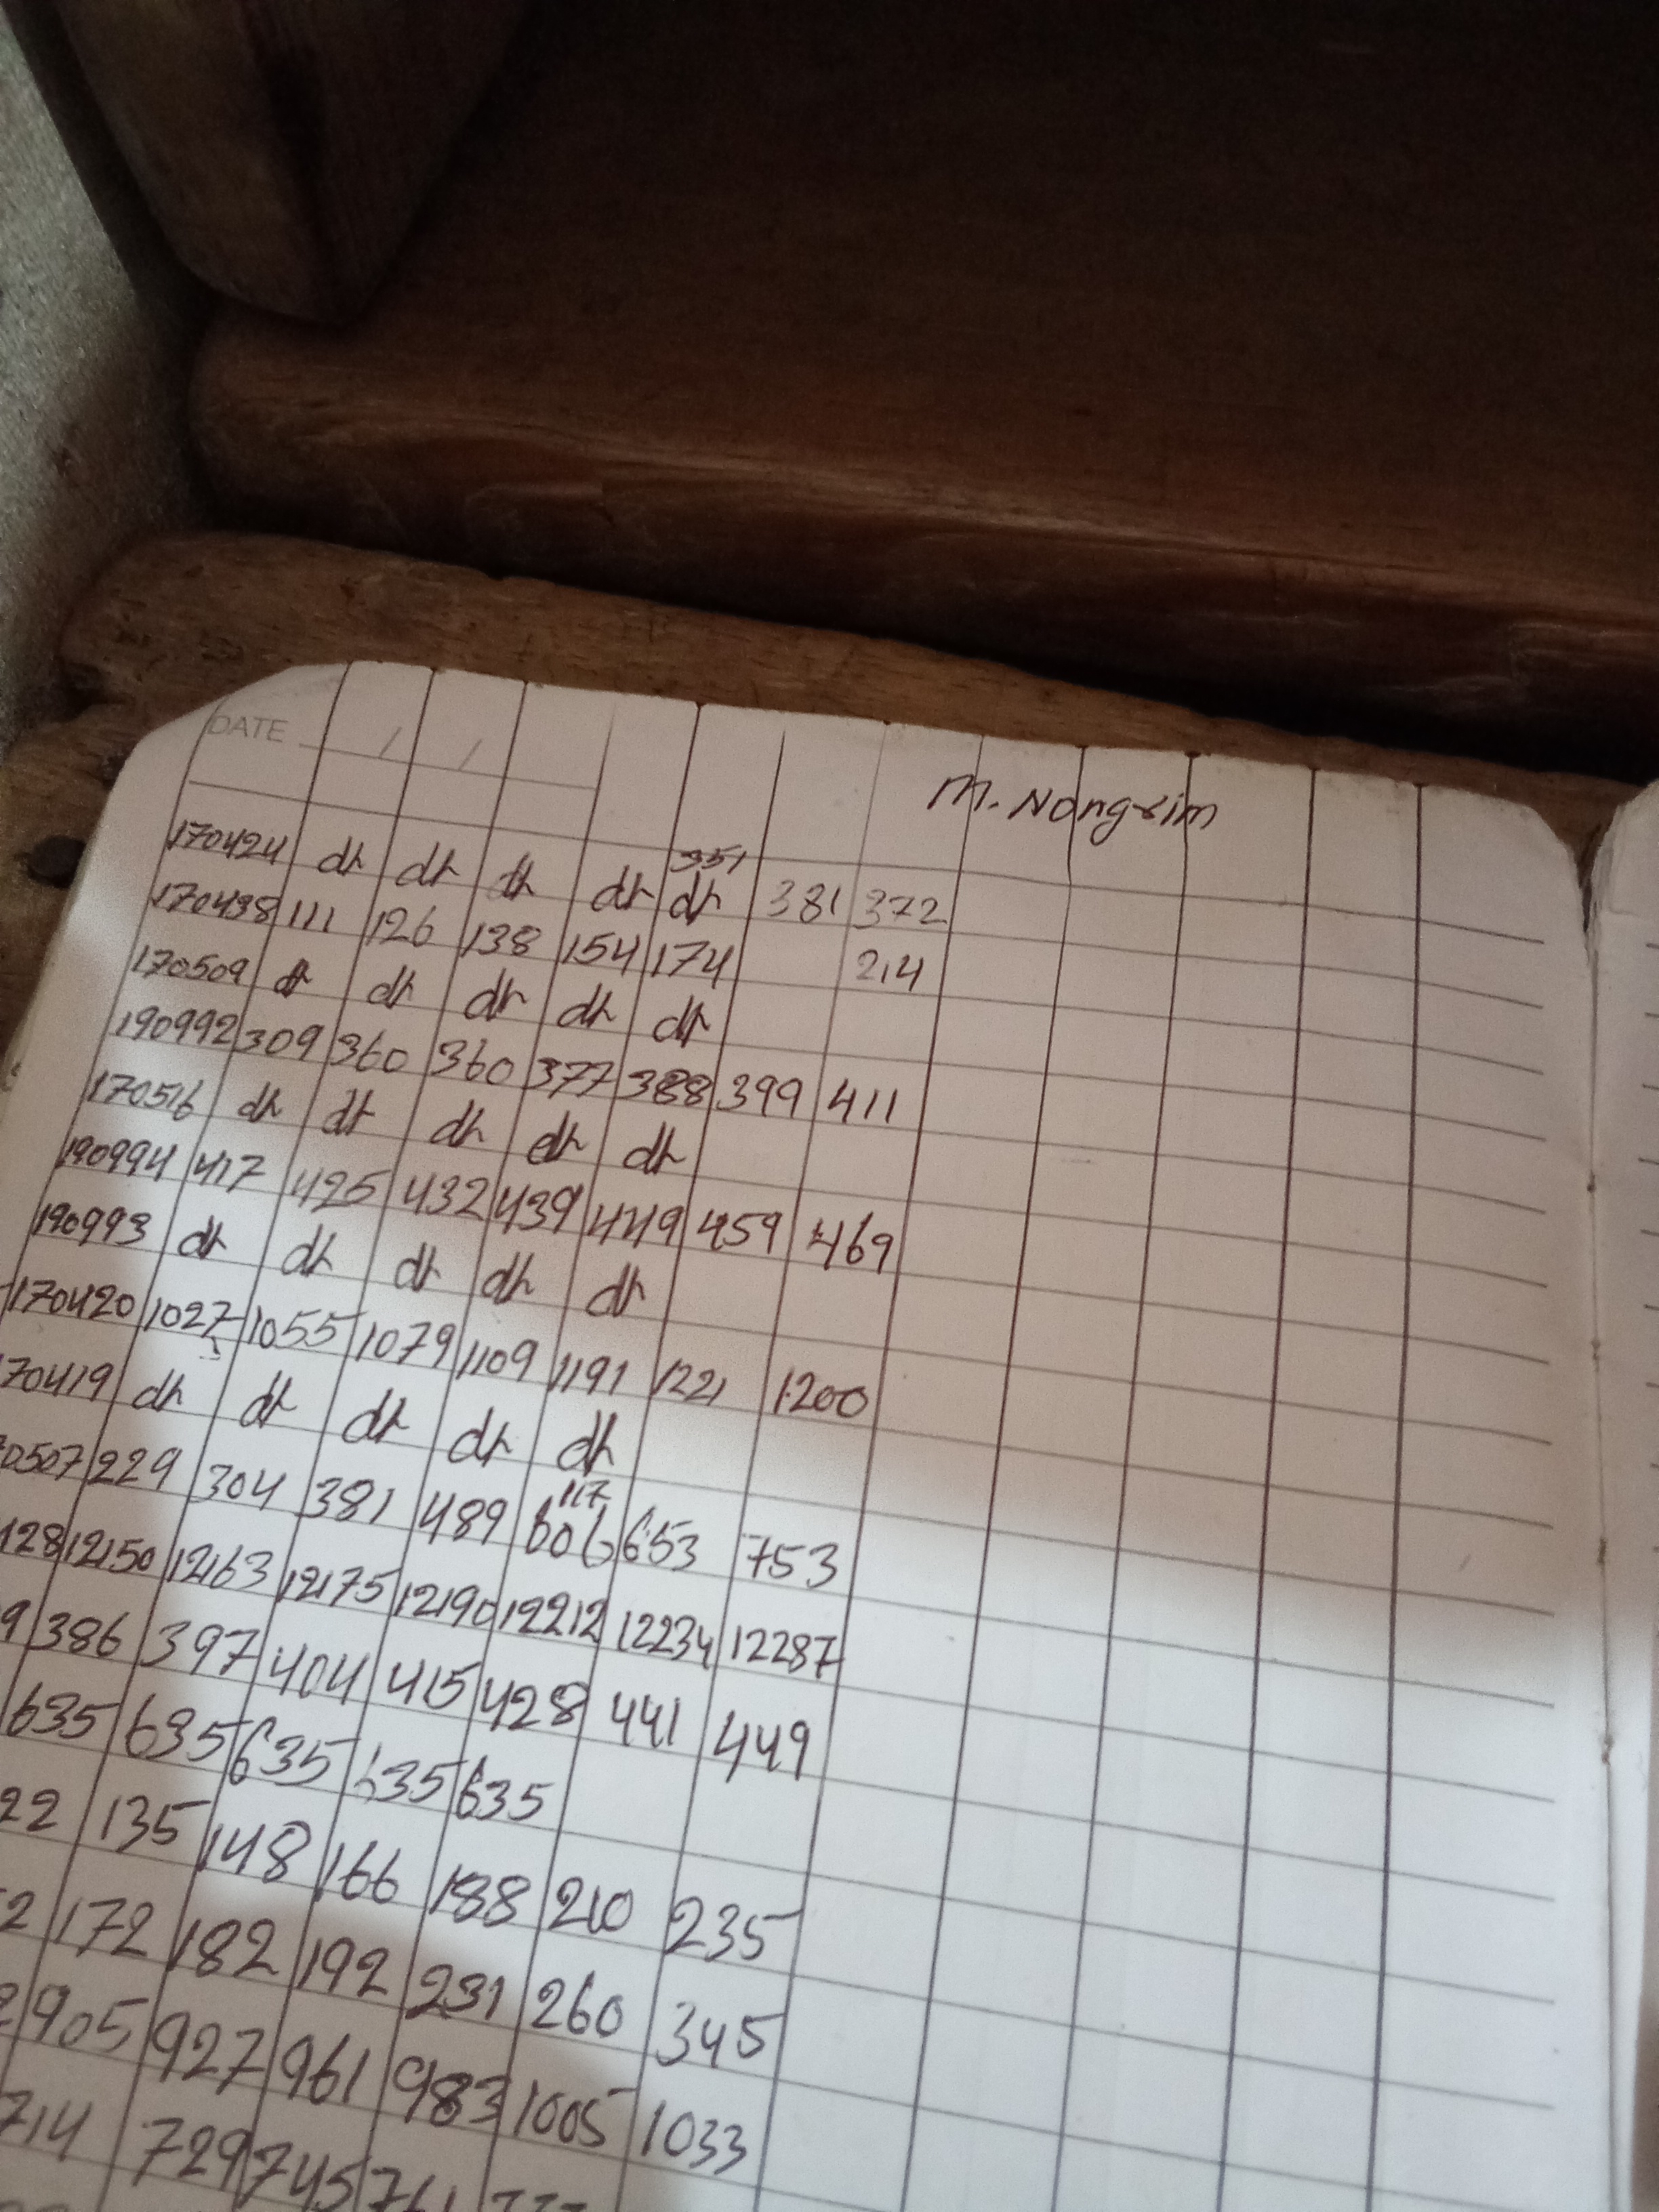 DATE / /
M. Nongrim
351
170424 dr dr dr dr dr 381 372
170438 111 126 138 154 174 214
170509 dr dr dr dr dr
190992 309 360 360 377 388 399 411
170516 dr dr dr dr dr
190994 417 425 432 439 449 459 469
190993 dr dr dr dr dr
170420 1027 1055 1079 1109 1191 1221 1200
70419 dr dr dr dr dr
117
0507 229 304 381 489 606 653 753
128 12150 12163 12175 12190 12212 12234 12287
9 386 397 404 415 428 441 449
635 635 635 635 635
22 135 148 166 188 210 235
2 172 182 192 231 260 345
905 927 961 983 1005 1033
714 729 745 761